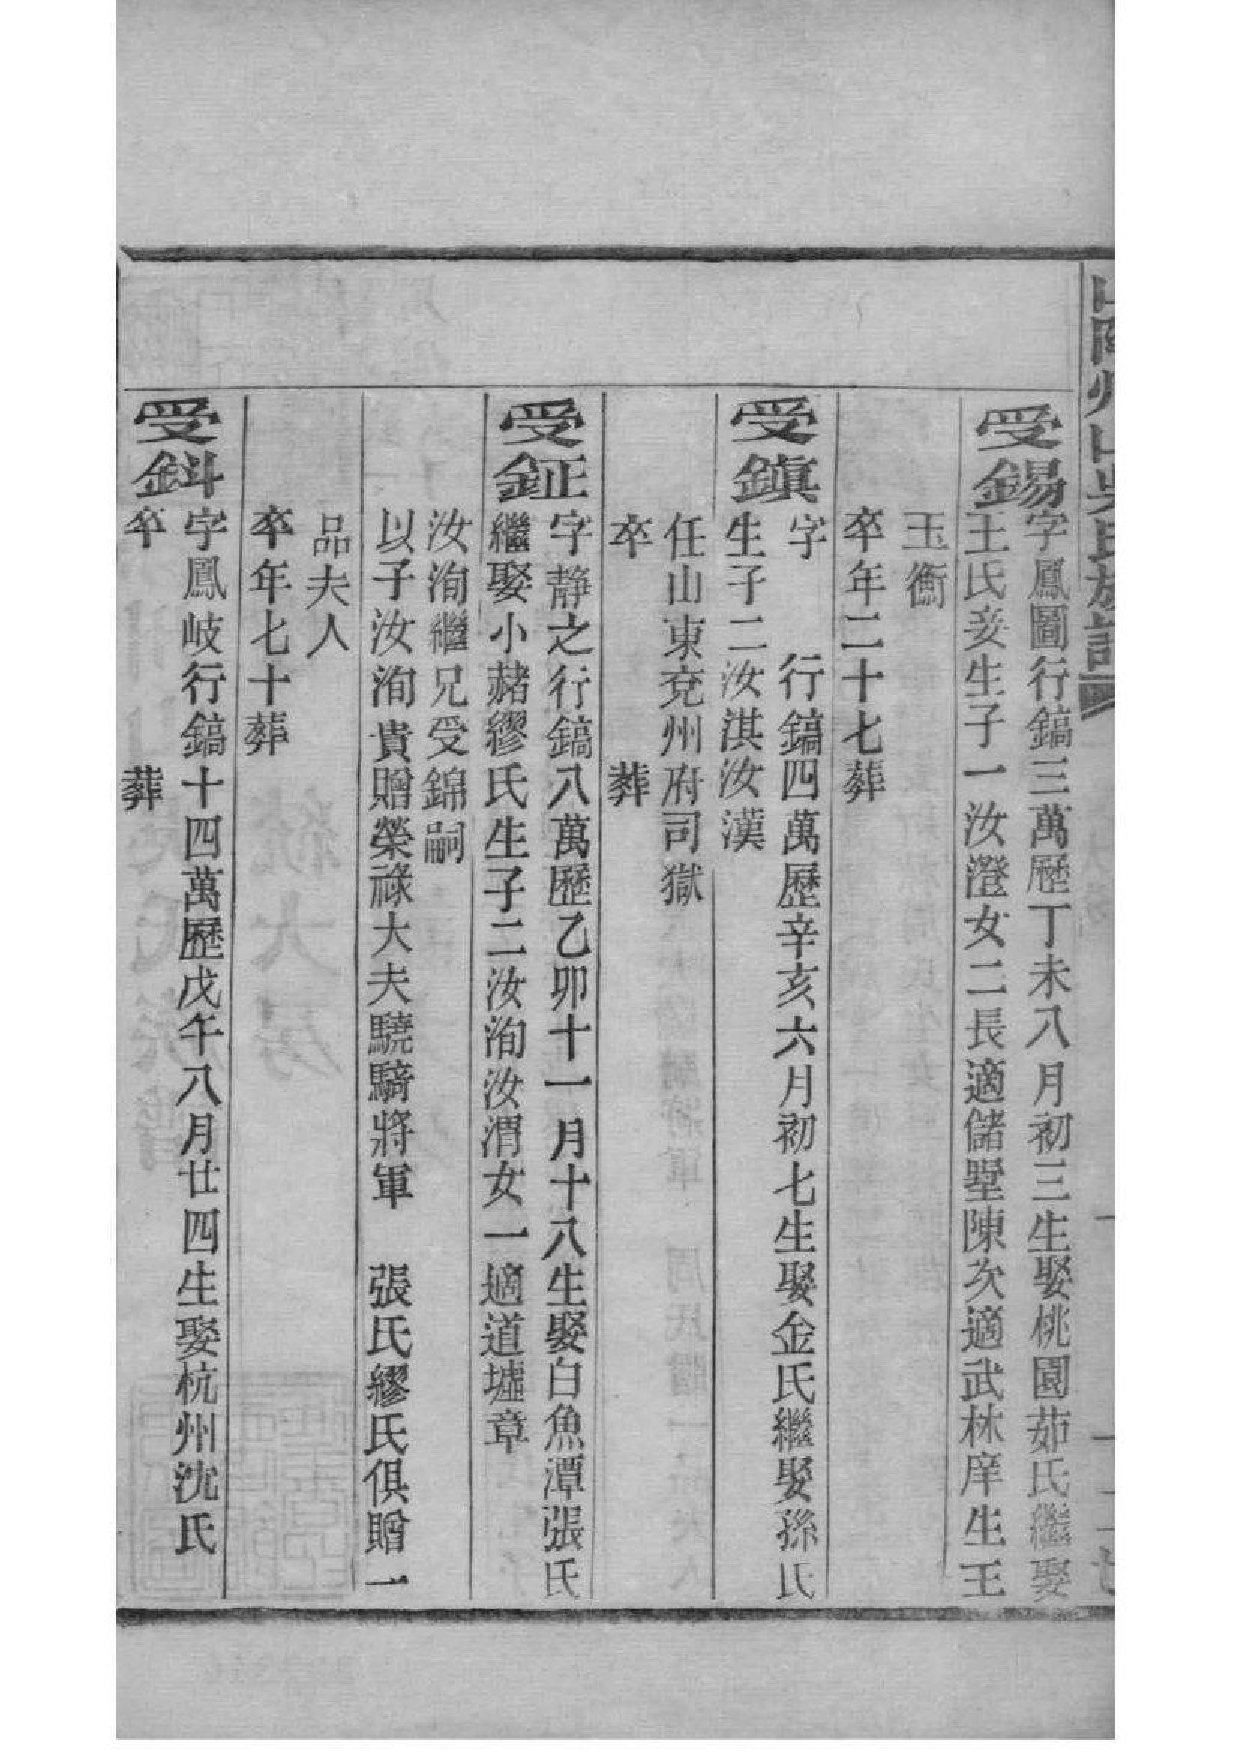 山陰州山吳氏族譜
受錫
字鳳圖行鎬三萬歷丁未八月初三生娶桃園茹氏繼娶
王氏妾生子一汝澄女二長適儲墅陳次適武林庠生王
玉衡
卒年二十七葬
受鎮
字　行鎬四萬歷辛亥六月初七生娶金氏繼娶孫氏
生子二汝淇汝漢
任山東兗州府司獄
卒　葬
受鉦
字靜之行鎬八萬歷乙卯十一月十八生娶白魚潭張氏
繼娶小赭繆氏生子二汝洵汝渭女一適道墟章
汝洵繼兄受錦嗣
以子汝洵貴贈榮祿大夫驍騎將軍　張氏繆氏俱贈一
品夫人
卒年七十葬
受鈄
字鳳岐行鎬十四萬歷戊午八月廿四生娶杭州沈氏
卒　葬